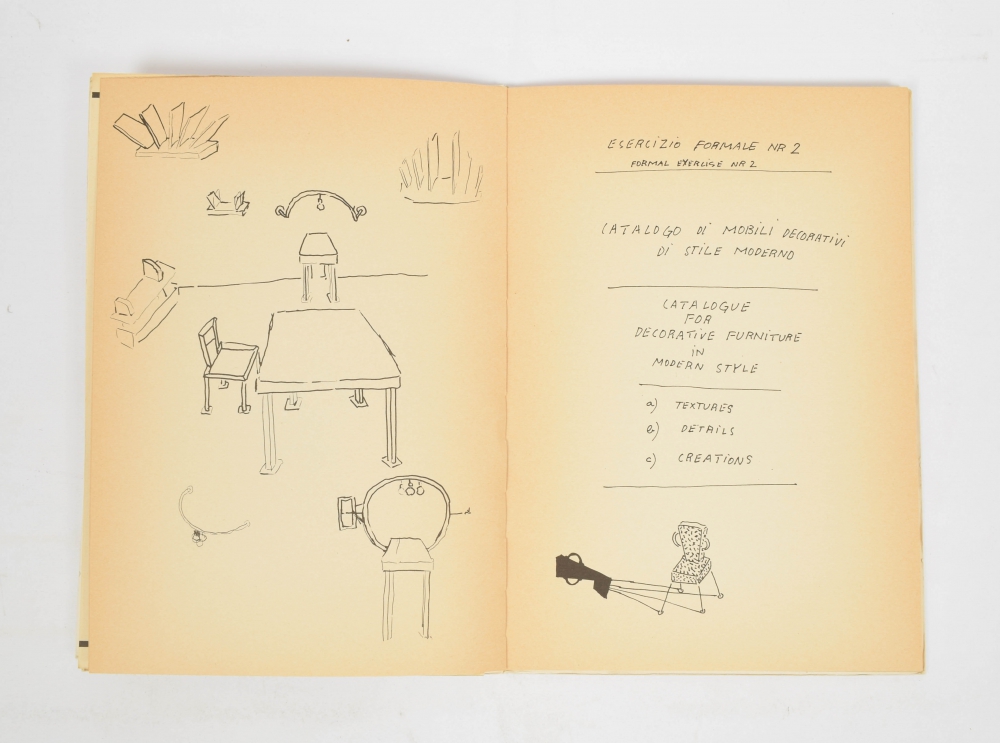 ESERCIZIO FORMALE NR 2
FORMAL EXERCISE NR 2
CATALOGO Di MOBILI DECORATIVI
DI STILE MODERNO
CATALOGUE
FOR
DECORATIVE FURNITURE
iN
MODERN STYLE
a) TEXTURES
b) DETAILS
c) CREATIONS